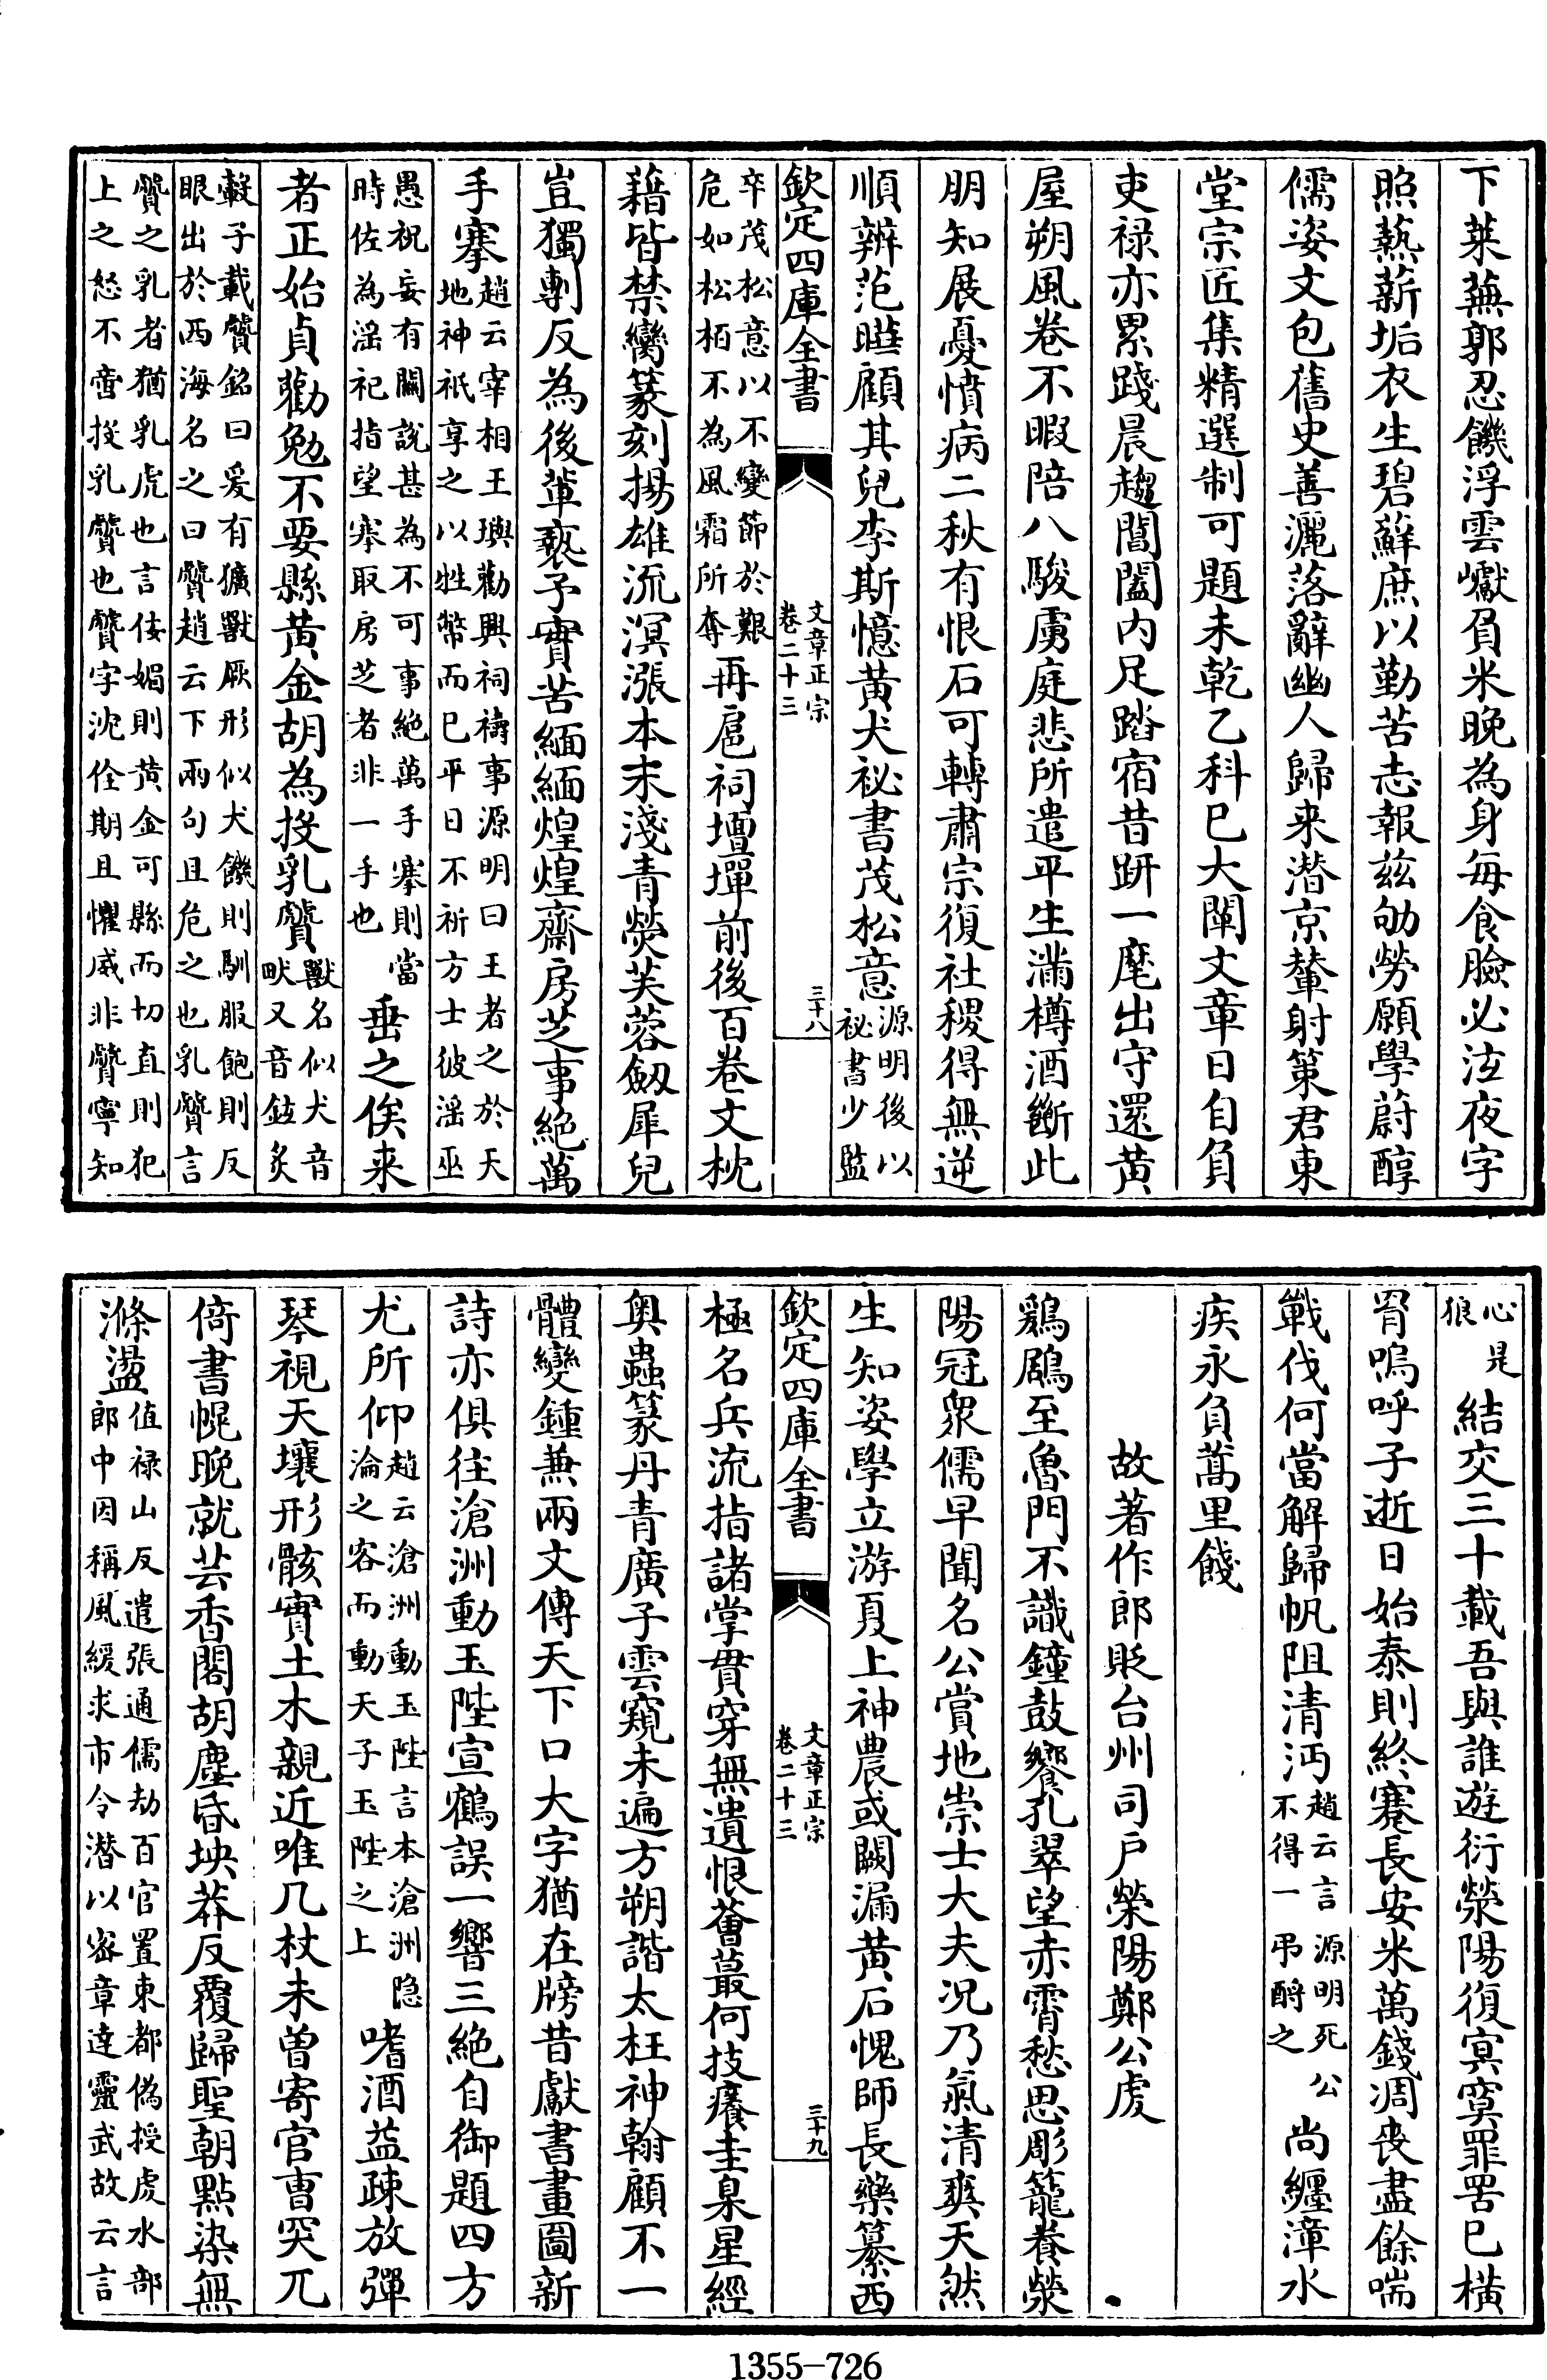 下萊蕪郭忍饑浮雲巘負米晚為身每食臉必泫夜字
照爇薪垢衣生碧蘚庶以勤苦志報兹劬勞願學蔚醇
儒姿文包舊史善灑落辭幽人歸来潜京輦射策君東
堂宗匠集精選制可題未乾乙科已大闡文章日自負
吏禄亦累踐晨趨閶闔内足踏宿昔趼一麾出守還黄
屋朔風卷不暇陪八駿虜庭悲所遣平生滿樽酒斷此
朋知展憂憤病二秋有恨石可轉肅宗復社稷得無逆
順辨范曄顧其兒李斯憶黄犬祕書茂松意源明後以
祕書少監
欽定四庫全書
文章正宗
卷二十三
三十八
卒茂松意以不變節於艱
危如松栢不為風霜所奪再扈祠壇墠前後百卷文枕
藉皆禁臠篆刻揚雄流溟漲本末淺青熒芙蓉劒犀兕
豈獨剸反為後輩褻予實苦緬緬煌煌齋房芝事絶萬
手搴趙云宰相王璵勸興祠禱事源明曰王者之於天
地神祇享之以牲幣而已平日不祈方士彼滛巫
愚祝妄有關説甚為不可事絶萬手搴則當
時佐為滛祀指望搴取房芝者非一手也垂之俟来
者正始貞勸勉不要縣黄金胡為投乳贙獸名似犬音
畎又音鉉炙
轂子載贙銘曰爰有獷獸厥形似犬饑則馴服飽則反
眼出於西海名之曰贙趙云下兩句且危之也乳贙言
贙之乳者猶乳虎也言佞媚則黄金可縣而切直則犯
上之怒不啻投乳贙也贙字沈佺期且懼威非贙寧知
心是
狼結交三十載吾與誰遊衍滎陽復㝠寞罪罟已横
罥嗚呼子逝日始泰則終蹇長安米萬錢凋喪盡餘喘
戰伐何當解歸帆阻清沔趙云言源明死公
不得一弔酹之尚纒漳水
疾永負蒿里餞
故著作郎貶台州司户滎陽鄭公虔
鶢鶋至魯門不識鐘鼓饗孔翠望赤霄愁思彫籠養滎
陽冠衆儒早聞名公賞地崇士大夫况乃氣清爽天然
生知姿學立游夏上神農或闕漏黄石愧師長藥纂西
欽定四庫全書
文章正宗
卷二十三
三十九
極名兵流指諸掌貫穿無遺恨薈蕞何技癢圭臬星經
奥蟲篆丹青廣子雲窺未遍方朔諧太枉神翰顧不一
體變鍾兼兩文傳天下口大字猶在牓昔獻書畫圖新
詩亦俱往滄洲動玉陛宣鶴誤一響三絶自御題四方
尤所仰趙云滄洲動玉陛言本滄洲隐
淪之客而動天子玉陛之上嗜酒益疎放彈
琴視天壤形骸實土木親近唯几杖未曽寄官曺突兀
倚書幌晚就芸香閣胡塵昏坱莽反覆歸聖朝點染無
滌盪值禄山反遣張通儒刼百官置東都偽授虔水部
郎中因稱風緩求市令潜以宻章達靈武故云言
1355—726